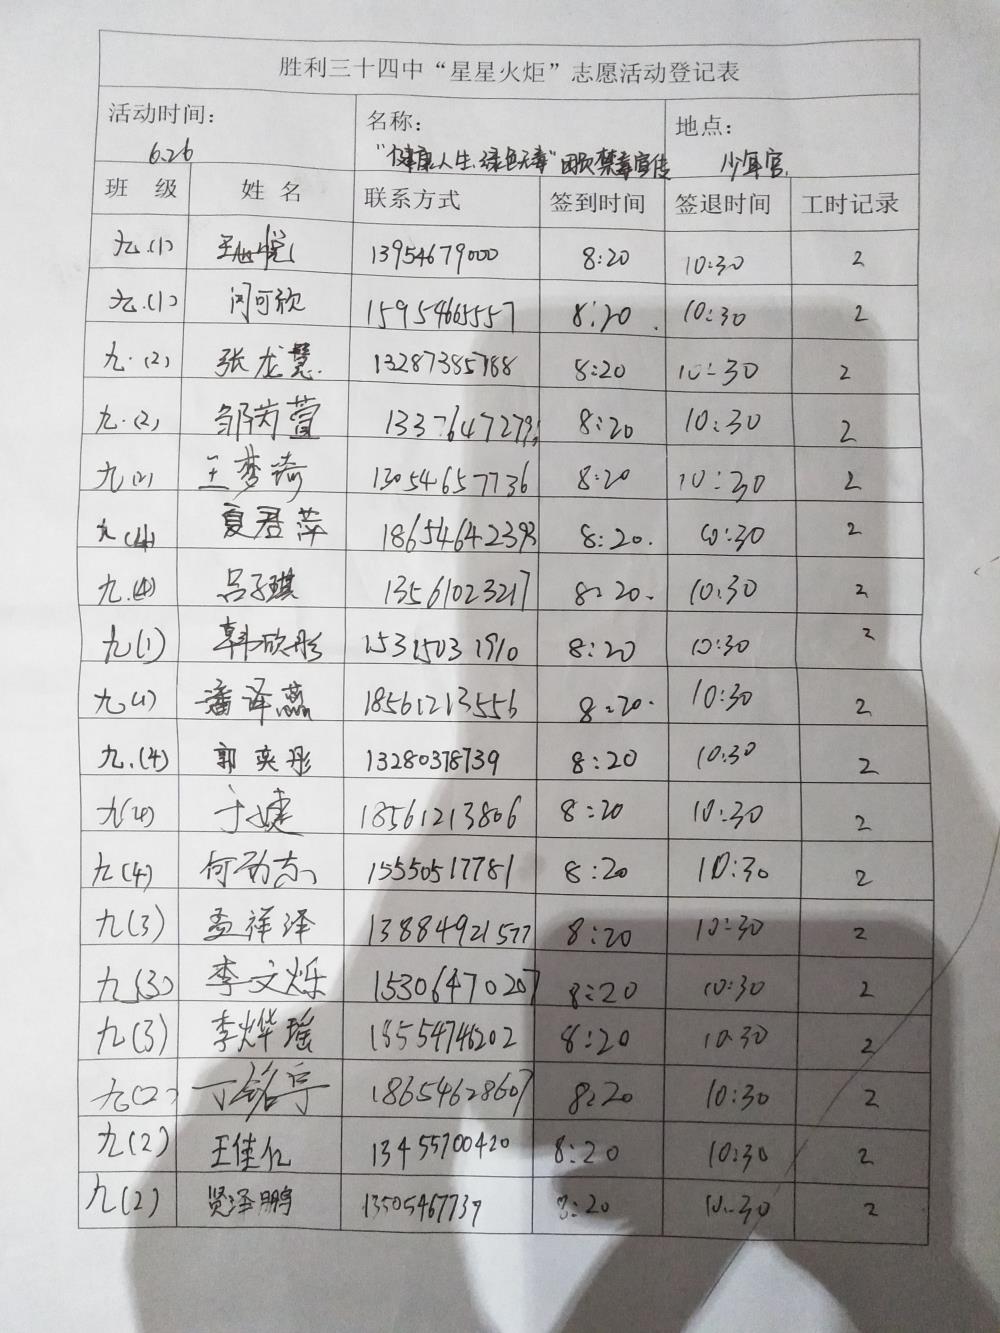 胜利三十四中“星星火炬”志愿活动登记表
活动时间： 名称： 地点：
6.26 “健康人生、绿色无毒” 禁毒宣传 少年宫.
班 级 姓 名 联系方式 签到时间 签退时间 工时记录
九.(1) 王心悦 13954679000 8:20 10:30 2
九.(1) 闫可欣 15954665557 8:20. 10:30 2
九.(2) 张龙慧. 13287385788 8:20 10:30 2
九.(2) 邹芮萱 1337647279 8:20 10:30 2
九(2) 王梦琦 13054657736 8:20 10:30 2
九(4) 夏君萍 18654642393 8:20. 10:30 2
九.(4) 吕子琪 13561023217 8:20. 10:30 2
九(1) 韩欣彤 15315031910 8:20 10:30 2
九(1) 潘译燕 18561213556 8:20. 10:30 2
九.(4) 郭奕彤 13280378739 8:20 10:30 2
九(4) 于婕 18561213806 8:20 10:30 2
九(4) 何 15550517781 8:20 10:30 2
九(3) 孟祥泽 13884921577 8:20 10:30 2
九(3) 李文烁 15306470207 8:20 10:30 2
九(3) 李烨瑶 18554746202 8:20 10:30 2
九(2) 丁铭宇 18654628607 8:20 10:30 2
九(2) 王佳仁 13455700420 8:20 10:30 2
九(2) 贤泽鹏 13505467739 8:20 10:30 2